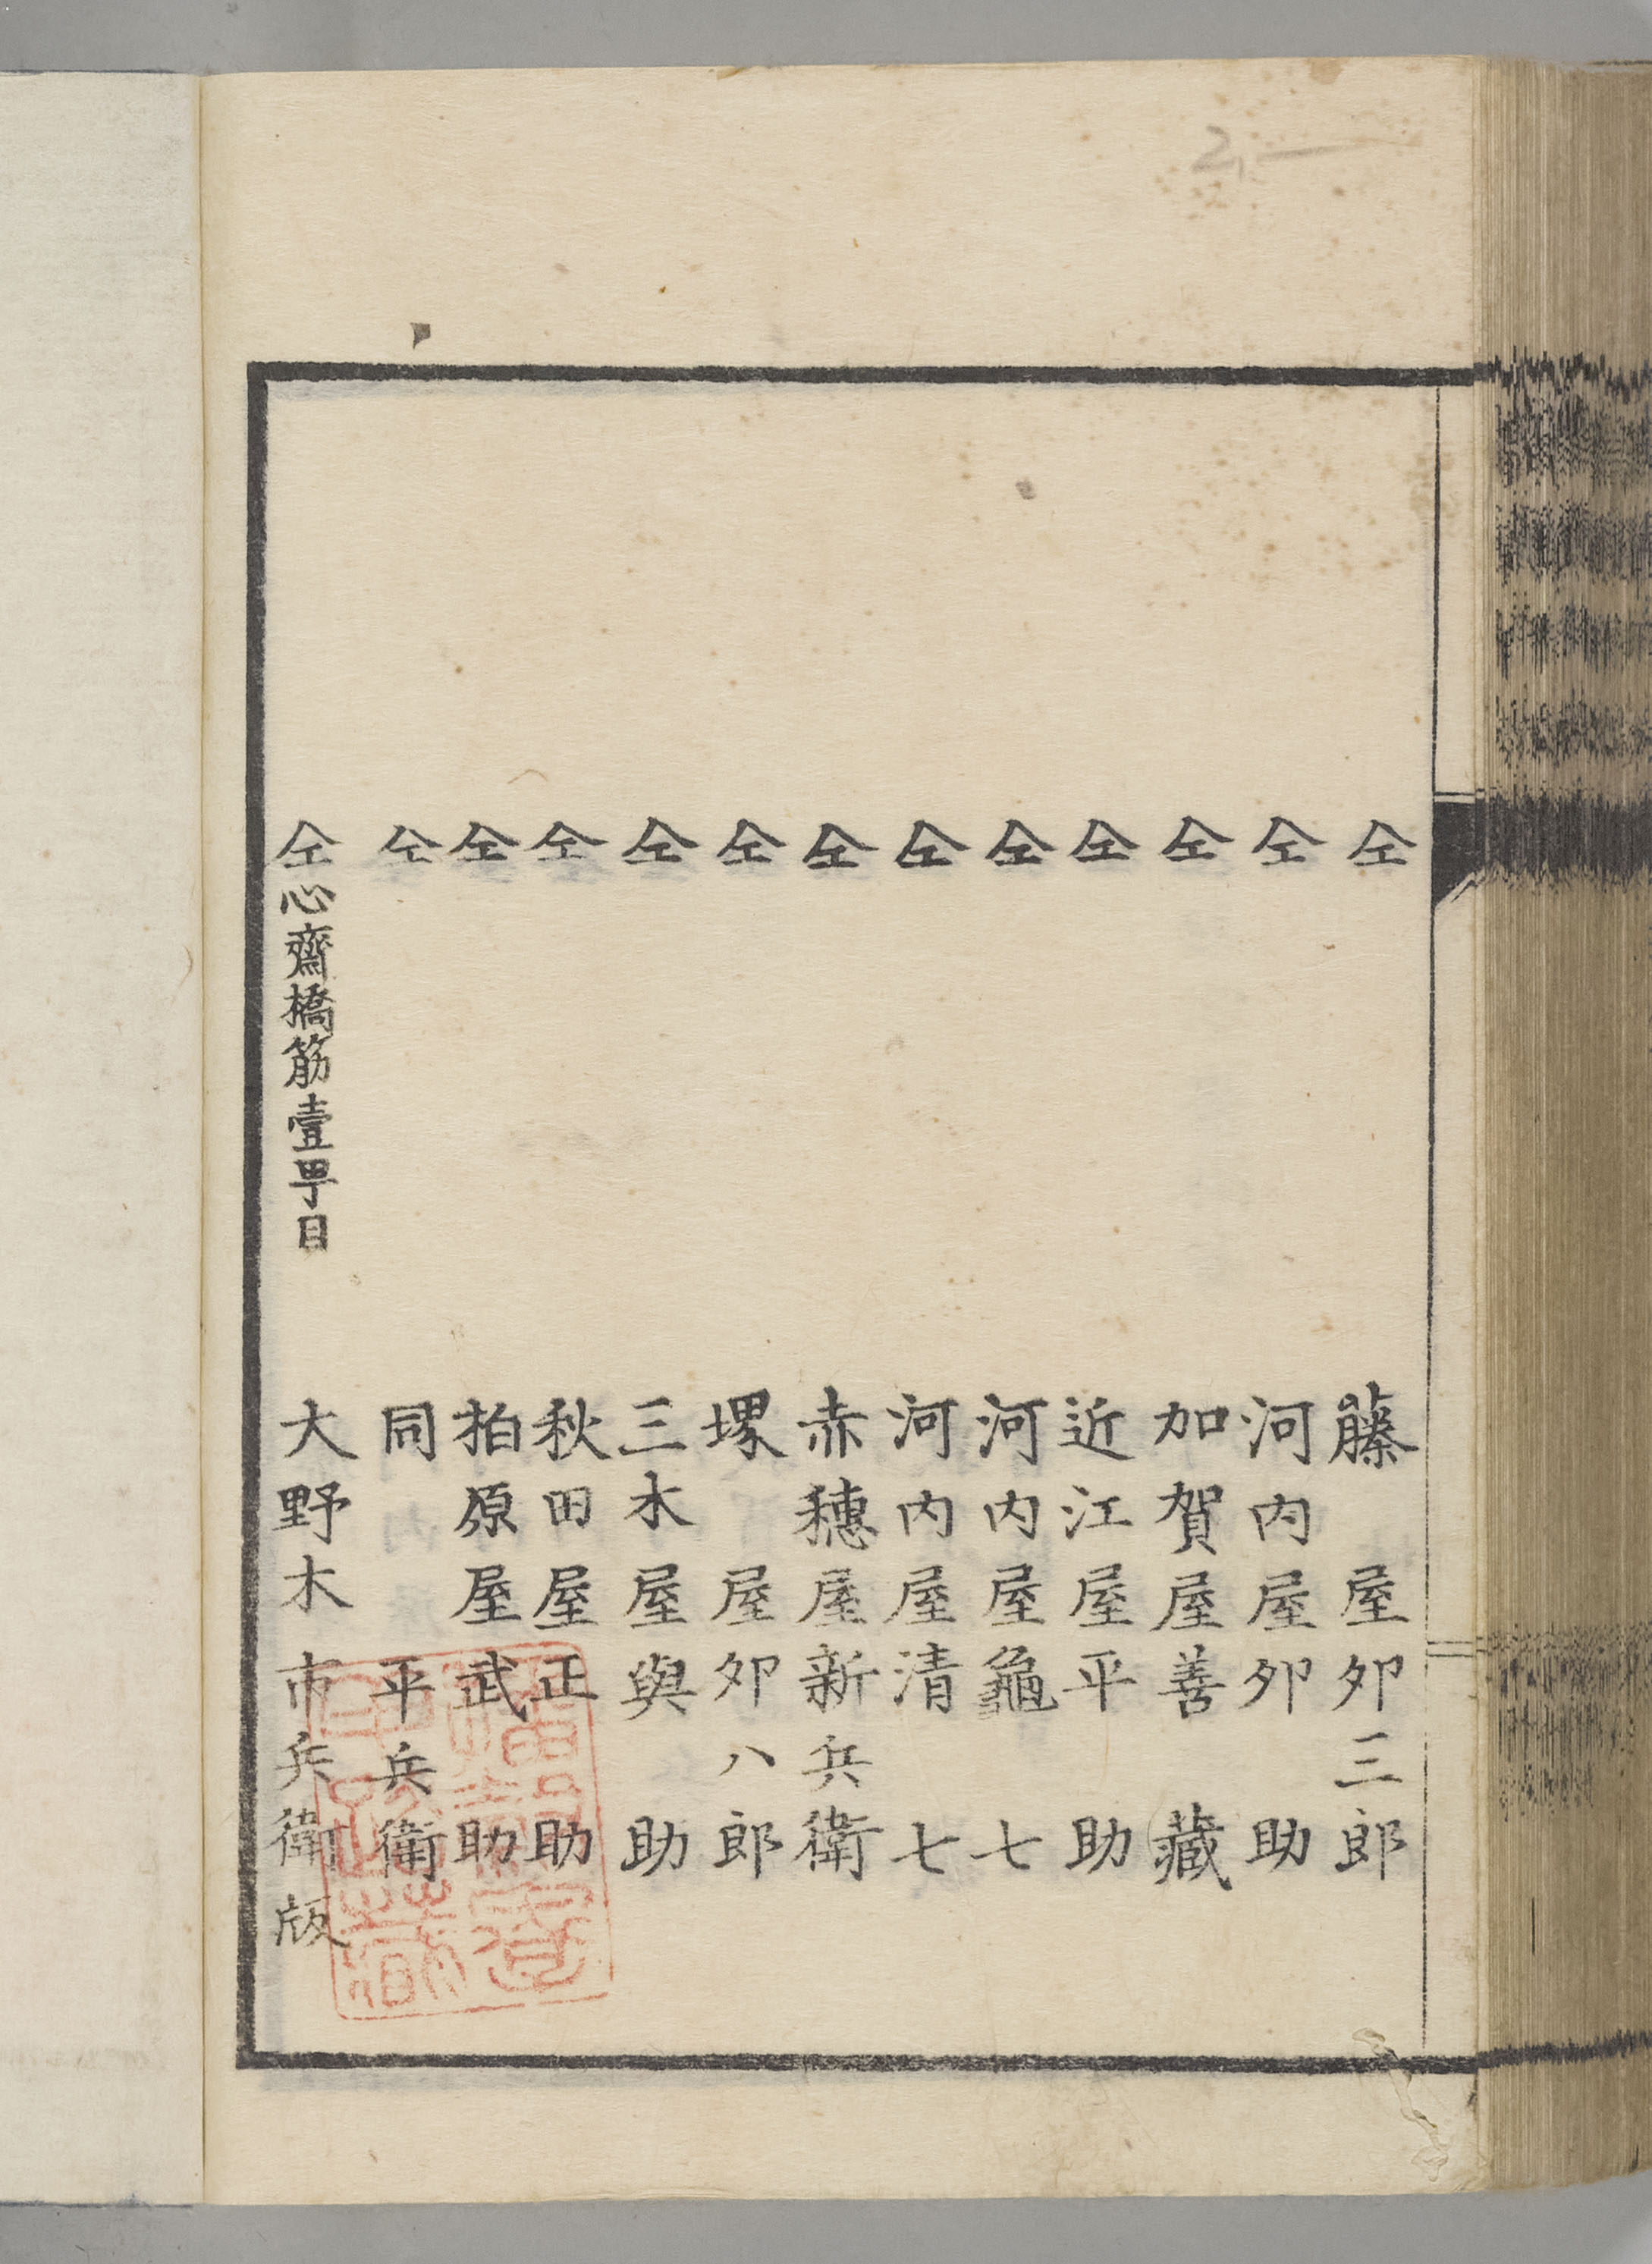 仝 藤屋夘三郎
仝 河内屋夘助
仝 加賀屋善藏
仝 近江屋平助
仝 河内屋龜七
仝 河内屋清七
仝 赤穗屋新兵衛
仝 堺屋夘八郎
仝 三木屋與助
仝 秋田屋正助
仝 柏原屋武助
仝 同 平兵衛
仝心齋橋筋壹丁目 大野木市兵衛版